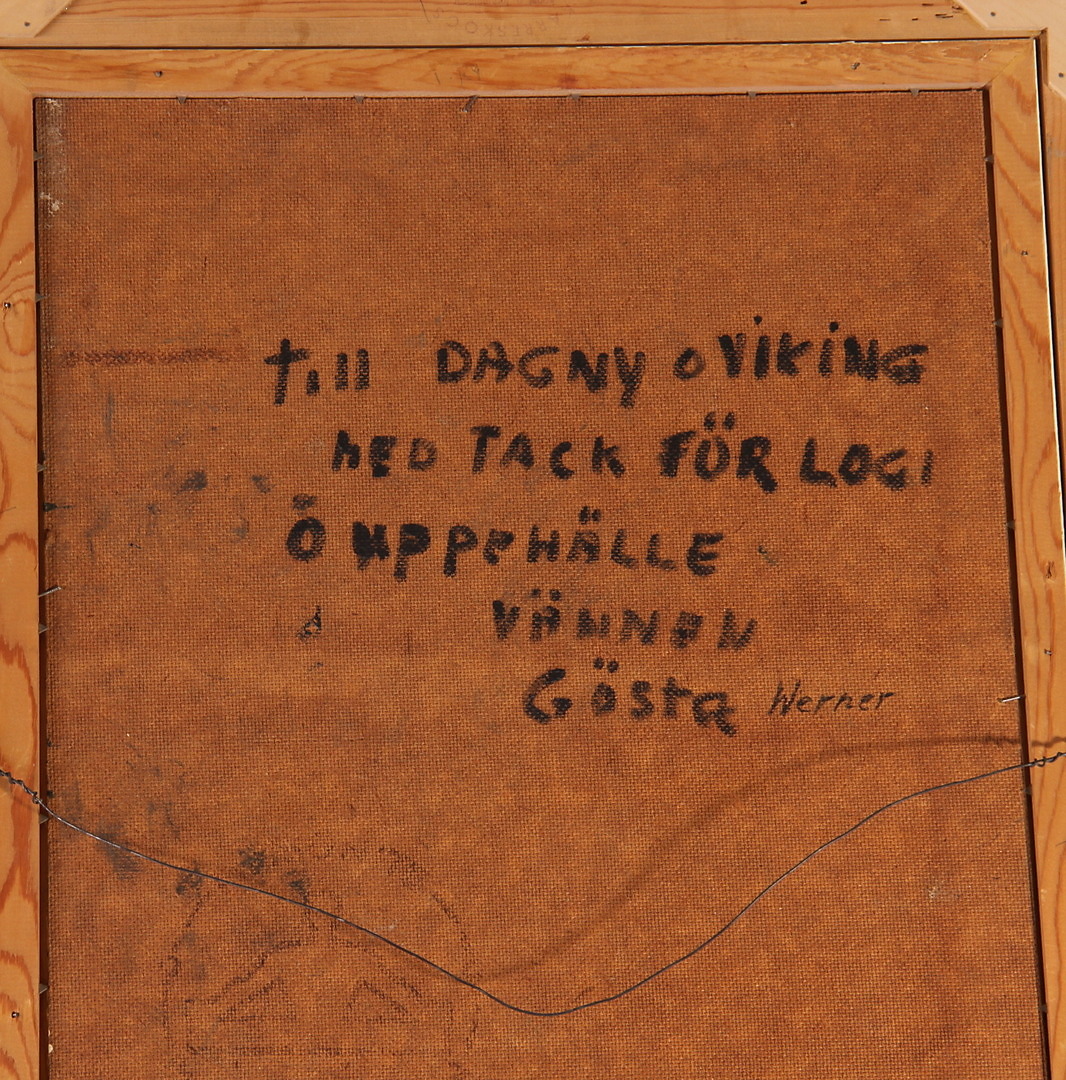 till DAGNY o ViKiNG
MED TACK FÖR LOGI
Ö UPPEHÄLLE
VÄNNEN
GÖSta Werner